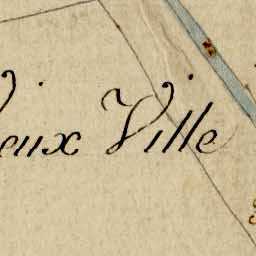 Vieux Ville